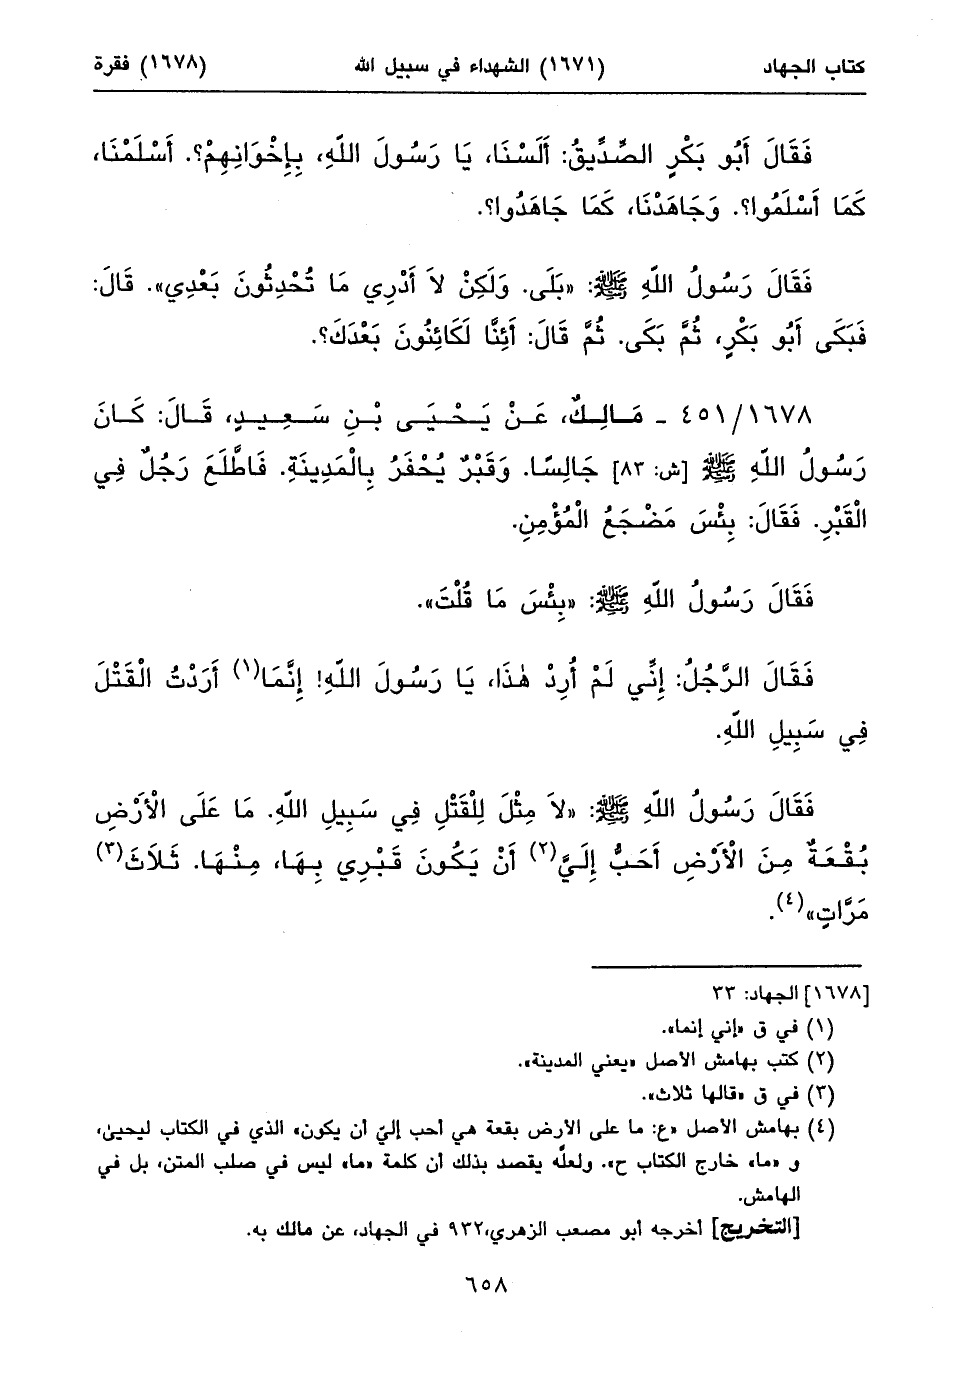 كتاب الجهاد (١٦٧١) الشهداء في سبيل الله (١٦٧٨) فقرة
فَقَالَ أَبُو بَكْرٍ الصِّدِّيقُ: أَلَسْنَا، يَا رَسُولَ اللّهِ، بِإِخْوَانِهِمْ؟. أَسْلَمْنَا،
كَمَا أَسْلَمُوا؟. وَجَاهَدْنَا، كَمَا جَاهَدُوا؟.
فَقَالَ رَسُولُ اللّهِ ﷺ: «بَلَى. وَلَكِنْ لاَ أَدْرِي مَا تُحْدِثُونَ بَعْدِي». قَالَ:
فَبَكَى أَبُو بَكْرٍ، ثُمَّ بَكَى. ثُمَّ قَالَ: أَئِنَّا لَكَائِنُونَ بَعْدَكَ؟.
٤٥١/١٦٧٨ - مَالِكٌ، عَنْ يَحْيَى بْنِ سَعِيدٍ، قَالَ: كَانَ
رَسُولُ اللّهِ ﷺ [ش: ٨٣] جَالِسًا. وَقَبْرٌ يُحْفَرُ بِالْمَدِينَةِ. فَاطَّلَعَ رَجُلٌ فِي
الْقَبْرِ. فَقَالَ: بِئْسَ مَضْجَعُ الْمُؤْمِنِ.
فَقَالَ رَسُولُ اللّهِ ﷺ: «بِئْسَ مَا قُلْتَ».
فَقَالَ الرَّجُلُ: إِنِّي لَمْ أُرِدْ هٰذَا، يَا رَسُولَ اللّهِ! إِنَّمَا(١) أَرَدْتُ الْقَتْلَ
فِي سَبِيلِ اللّهِ.
فَقَالَ رَسُولُ اللّهِ ﷺ: «لاَ مِثْلَ لِلْقَتْلِ فِي سَبِيلِ اللّهِ. مَا عَلَى الْأَرْضِ
بُقْعَةٌ مِنَ الْأَرْضِ أَحَبُّ إِلَيَّ(٢) أَنْ يَكُونَ قَبْرِي بِهَا، مِنْهَا. ثَلَاثَ(٣)
مَرَّاتٍ»(٤).
[١٦٧٨] الجهاد: ٣٣
(١) في ق «إني إنما».
(٢) كتب بهامش الأصل «يعني المدينة».
(٣) في ق «قالها ثلاث».
(٤) بهامش الأصل «ع: ما على الأرض بقعة هي أحب إليّ أن يكون» الذي في الكتاب ليحيىٰ،
و «ما» خارج الكتاب ح». ولعلّه يقصد بذلك أن كلمة «ما» ليس في صلب المتن، بل في
الهامش.
[التخريج] أخرجه أبو مصعب الزهري،٩٣٢ في الجهاد، عن مالك به.
٦٥٨